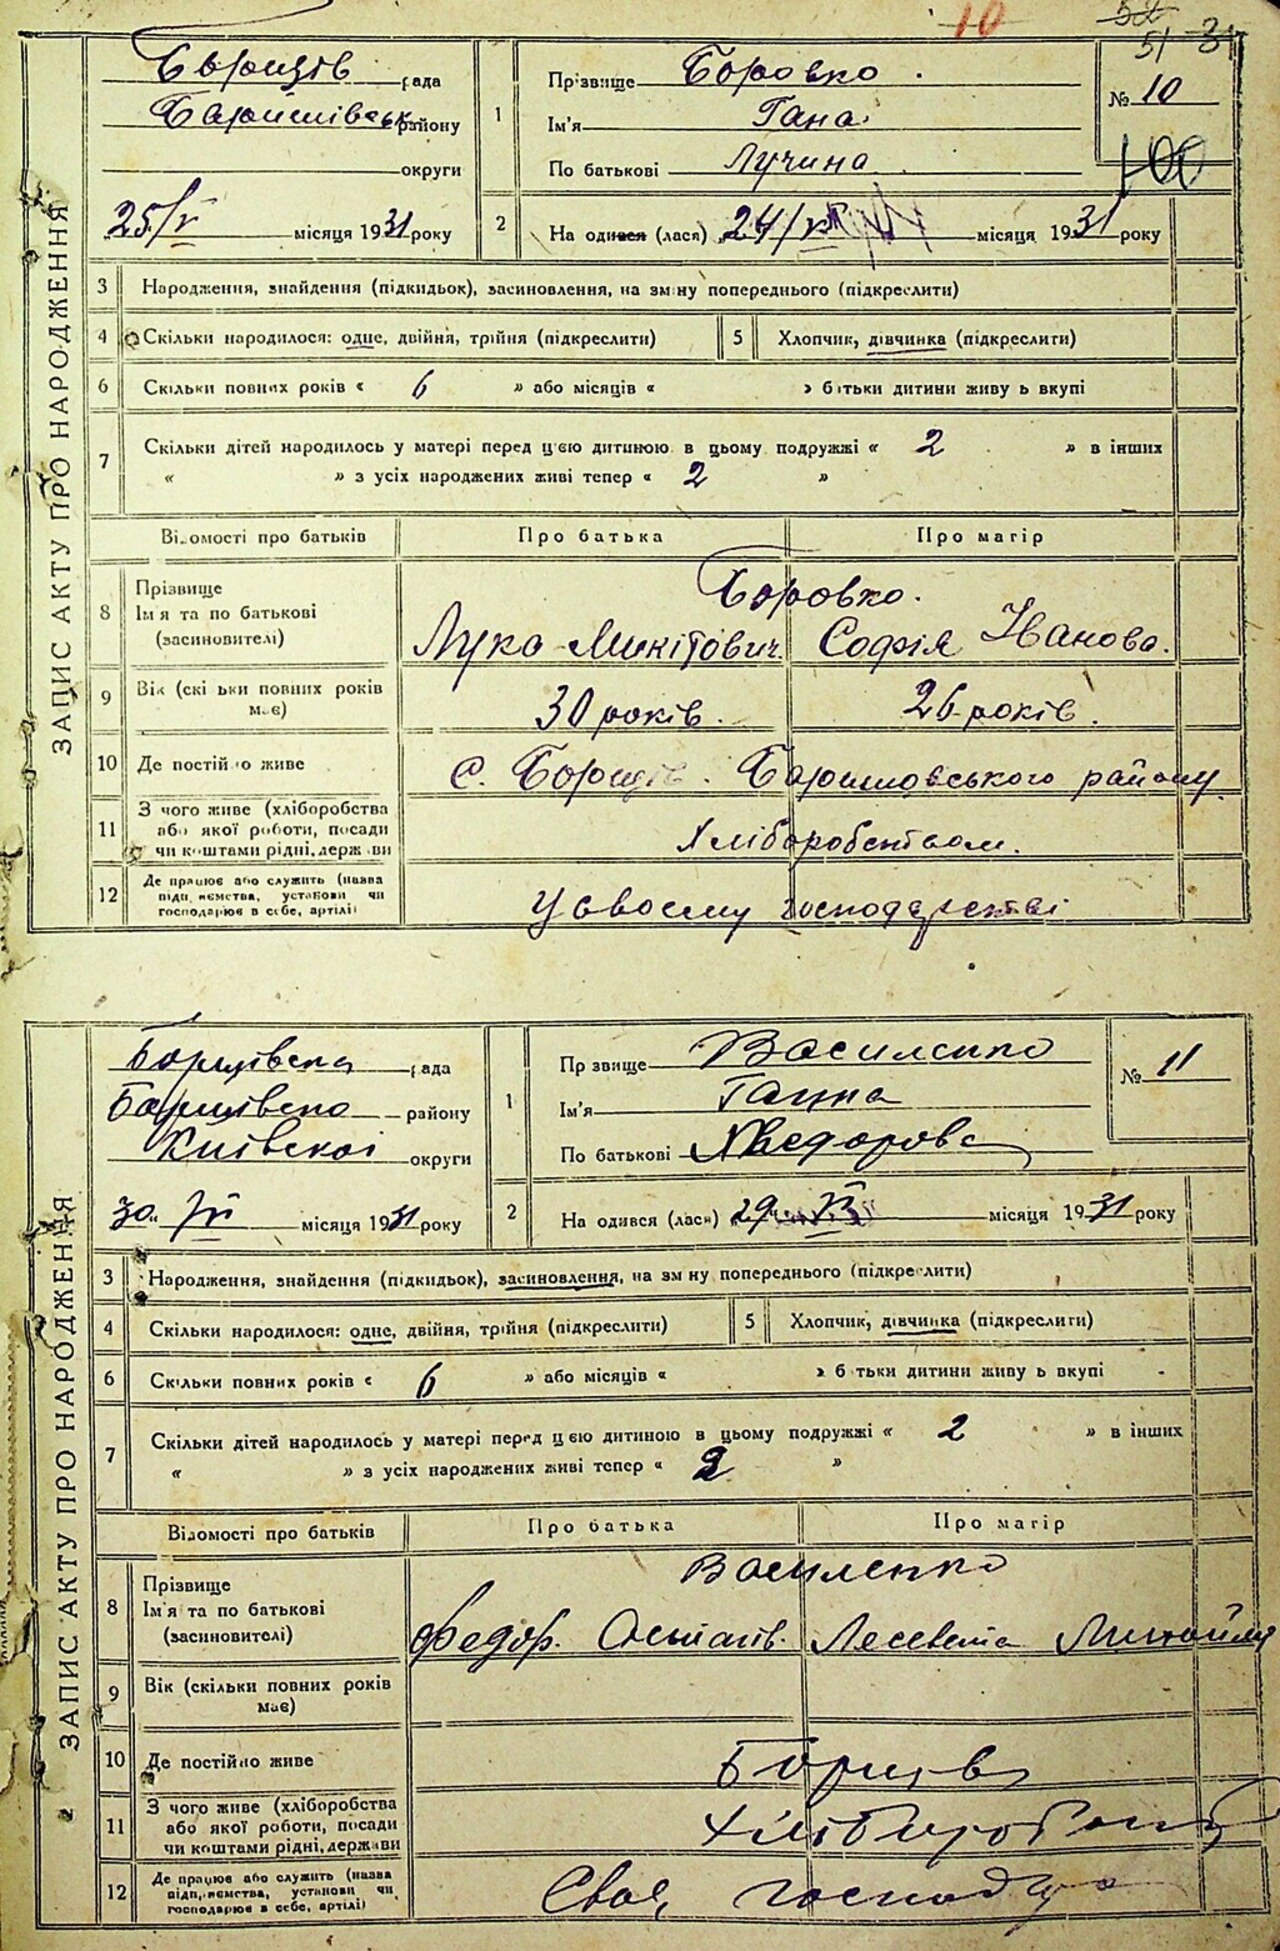 10
52
51 31
ЗАПИС АКТУ ПРО НАРОДЖЕННЯ
Борщів рада
Баришівськ району
округи
25/V місяця 1931 року
1
Прізвище Боровко.
Ім'я Гана.
По батькові Лучина
№ 10
100
2
На одився (лася) 24/VI місяця 1931 року
3 Народження, знайдення (підкидьок), засиновлення, на зміну попереднього (підкреслити)
4 Скільки народилося: одне, двійня, трійня (підкреслити)
5 Хлопчик, дівчинка (підкреслити)
6 Скільки повних років « 6 » або місяців « » батьки дитини живуть вкупі
7 Скільки дітей народилось у матері перед цією дитиною в цьому подружжі « 2 » в інших
« » з усіх народжених живі тепер « 2 »
Відомості про батьків Про батька Про матір
8 Прізвище
Ім'я та по батькові
(засиновителі)
Боровко.
Лука Микітович. Софія Іванова.
9 Вік (скільки повних років
має)
30 років. 26 років.
10 Де постійно живе
с. Борщів. Баришовського району.
11 З чого живе (хліборобства
або якої роботи, посади
чи коштами рідні, держави
Хліборобством.
12 Де працює або служить (назва
підприємства, установи чи
господарює в себе, артілі)
У своєму господарстві
ЗАПИС АКТУ ПРО НАРОДЖЕННЯ
Борщівська рада
району
Київскоі округи
30 місяця 1931 року
1
Прізвище Василенко
Ім'я Ганна
По батькові Хведорова
№ 11
2
На одився (лася) 29 VI місяця 1931 року
3 Народження, знайдення (підкидьок), засиновлення, на зміну попереднього (підкреслити)
4 Скільки народилося: одне, двійня, трійня (підкреслити)
5 Хлопчик, дівчинка (підкреслити)
6 Скільки повних років « 6 » або місяців « » батьки дитини живуть вкупі
7 Скільки дітей народилось у матері перед цією дитиною в цьому подружжі « 2 » в інших
« » з усіх народжених живі тепер « 2 »
Відомості про батьків Про батька Про матір
8 Прізвище
Ім'я та по батькові
(засиновителі)
Василенко
Федор. Михайл
9 Вік (скільки повних років
має)
10 Де постійно живе
Борщів
11 З чого живе (хліборобства
або якої роботи, посади
чи коштами рідні, держави
12 Де працює або служить (назва
підприємства, установи чи
господарює в себе, артілі)
Своє